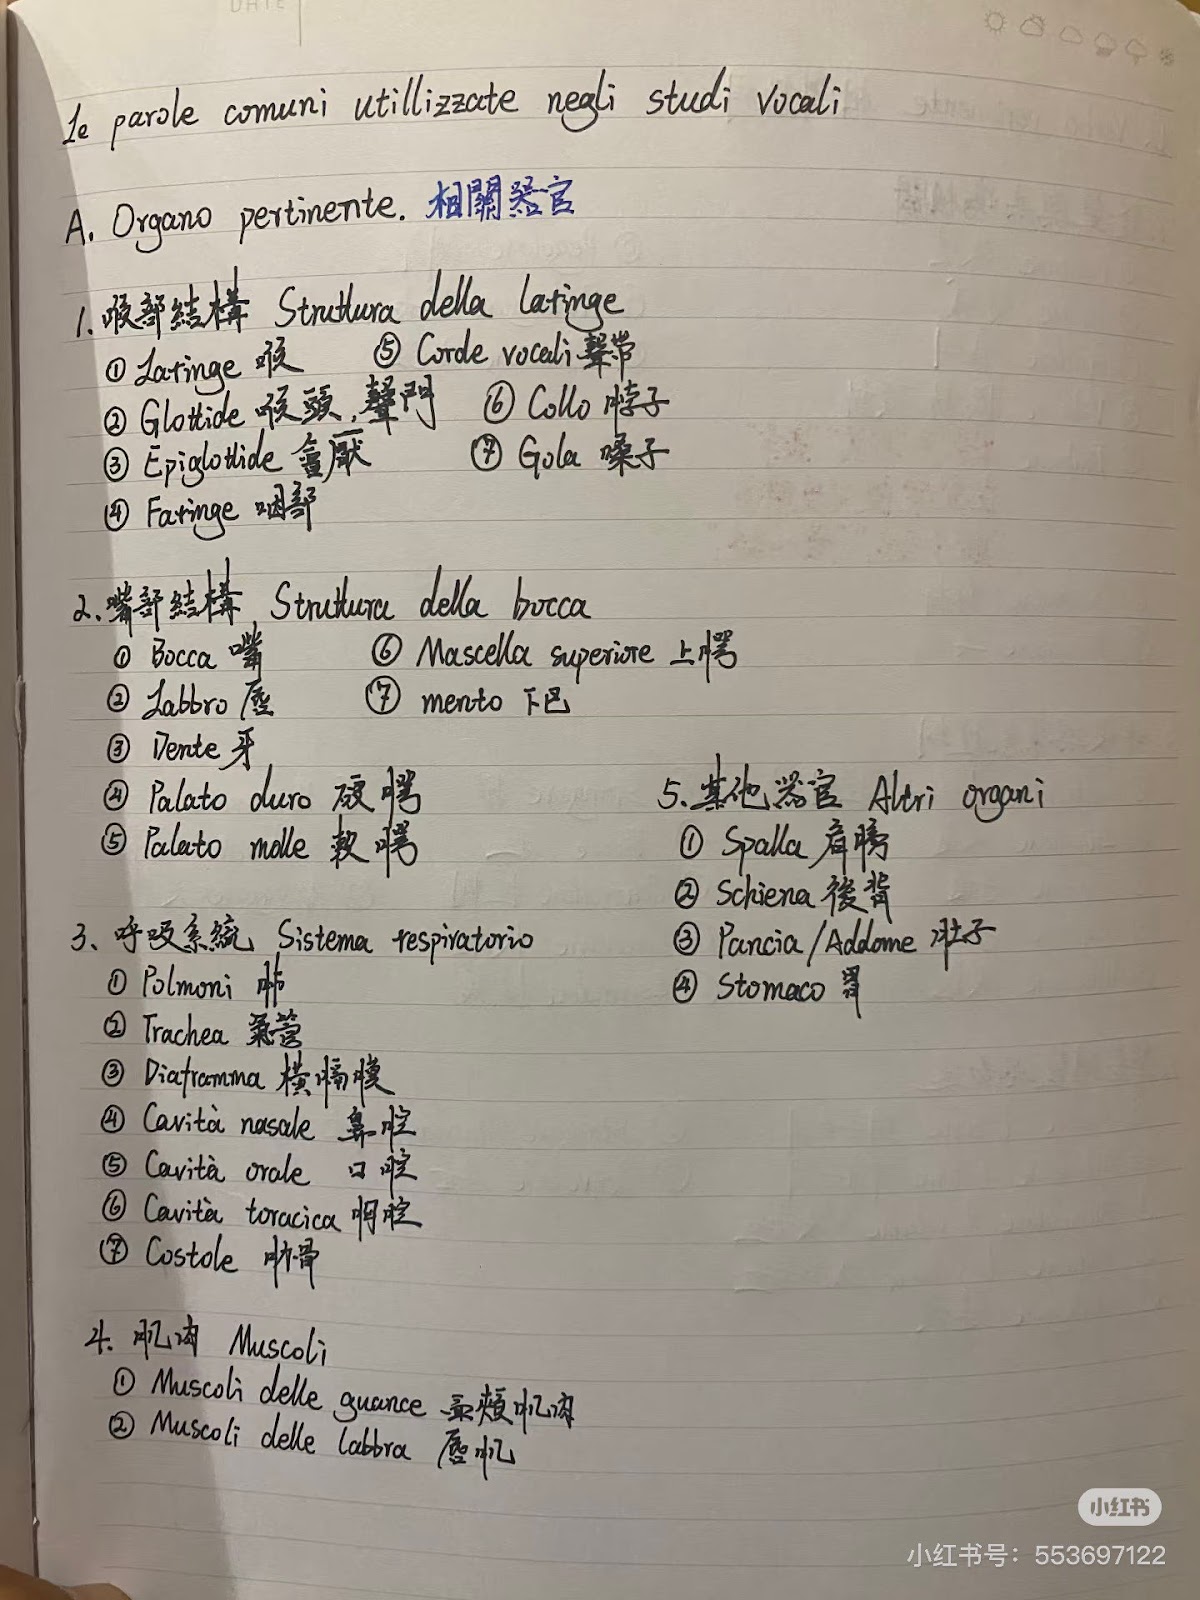 DATE
Le parole comuni utillizzate negli studi vocali
A. Organo pertinente. 相關器官
1. 喉部結構 Struttura della laringe
① Laringe 喉
⑤ Corde vocali 聲帶
② Glottide 喉頭, 聲門
⑥ Collo 脖子
③ Epiglottide 會厭
⑦ Gola 嗓子
④ Faringe 咽部
2. 嘴部結構 Struttura della bocca
① Bocca 嘴
⑥ Mascella superiore 上腭
② Labbro 唇
⑦ mento 下巴
③ Dente 牙
④ Palato duro 硬腭
⑤ Palato molle 軟腭
3. 呼吸系統 Sistema respiratorio
① Polmoni 肺
② Trachea 氣管
③ Diaframma 橫膈膜
④ Cavità nasale 鼻腔
⑤ Cavità orale 口腔
⑥ Cavità toracica 胸腔
⑦ Costole 肋骨
4. 肌肉 Muscoli
① Muscoli delle guance 面頰肌肉
② Muscoli delle labbra 唇肌
5. 其他器官 Altri organi
① Spalla 肩膀
② Schiena 後背
③ Pancia/Addome 肚子
④ Stomaco 胃
小红书
小红书号：553697122